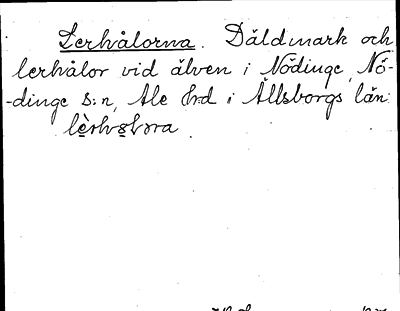 Lerhålorna. Däldmark och
lerhålor vid älven i Nödinge, Nö-
-dinge s:n, Ale hrd i Älfsborgs län.